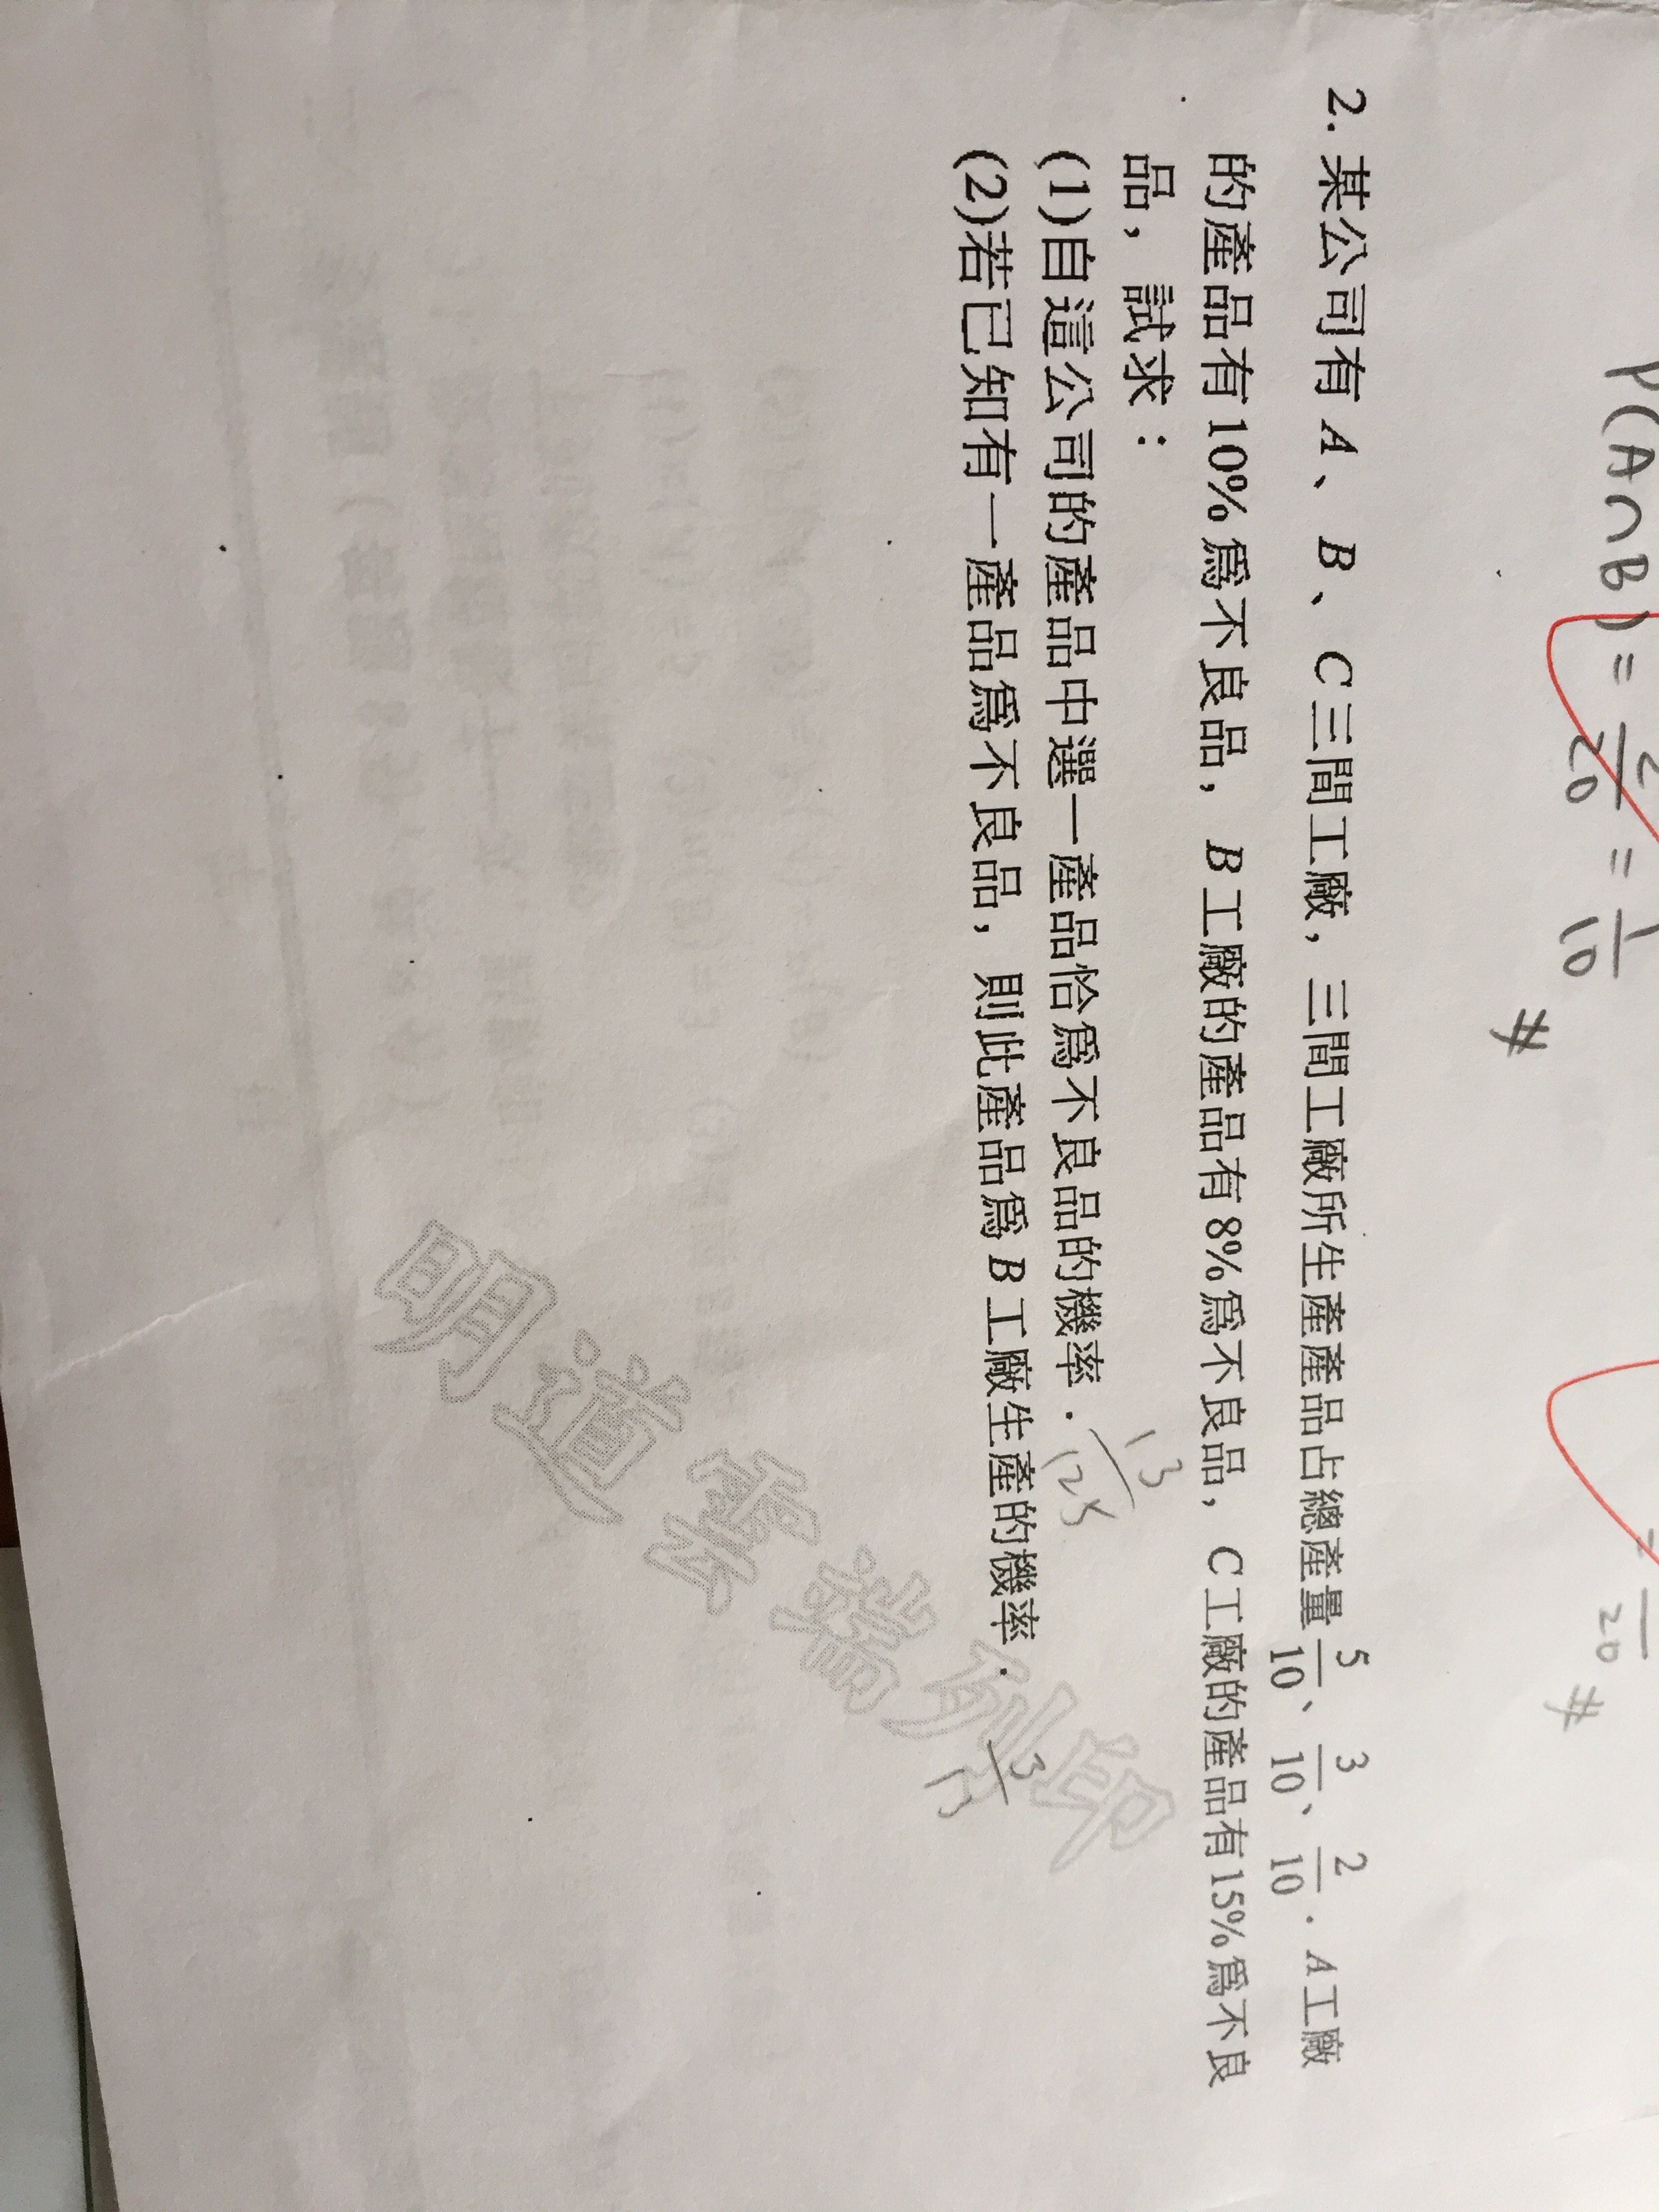 P(A∩B) = 2/20 = 1/10 #
20 #
2. 某公司有 A、B、C三間工廠，三間工廠所生產產品占總產量 5/10、3/10、2/10．A工廠
的產品有10%為不良品，B工廠的產品有8%為不良品，C工廠的產品有15%為不良
品，試求：
(1)自這公司的產品中選一產品恰為不良品的機率．13/125
(2)若已知有一產品為不良品，則此產品為B工廠生產的機率．3/13
明道雲端列印